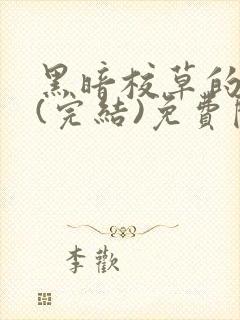 黑暗校草的
(完結)免費
李歡